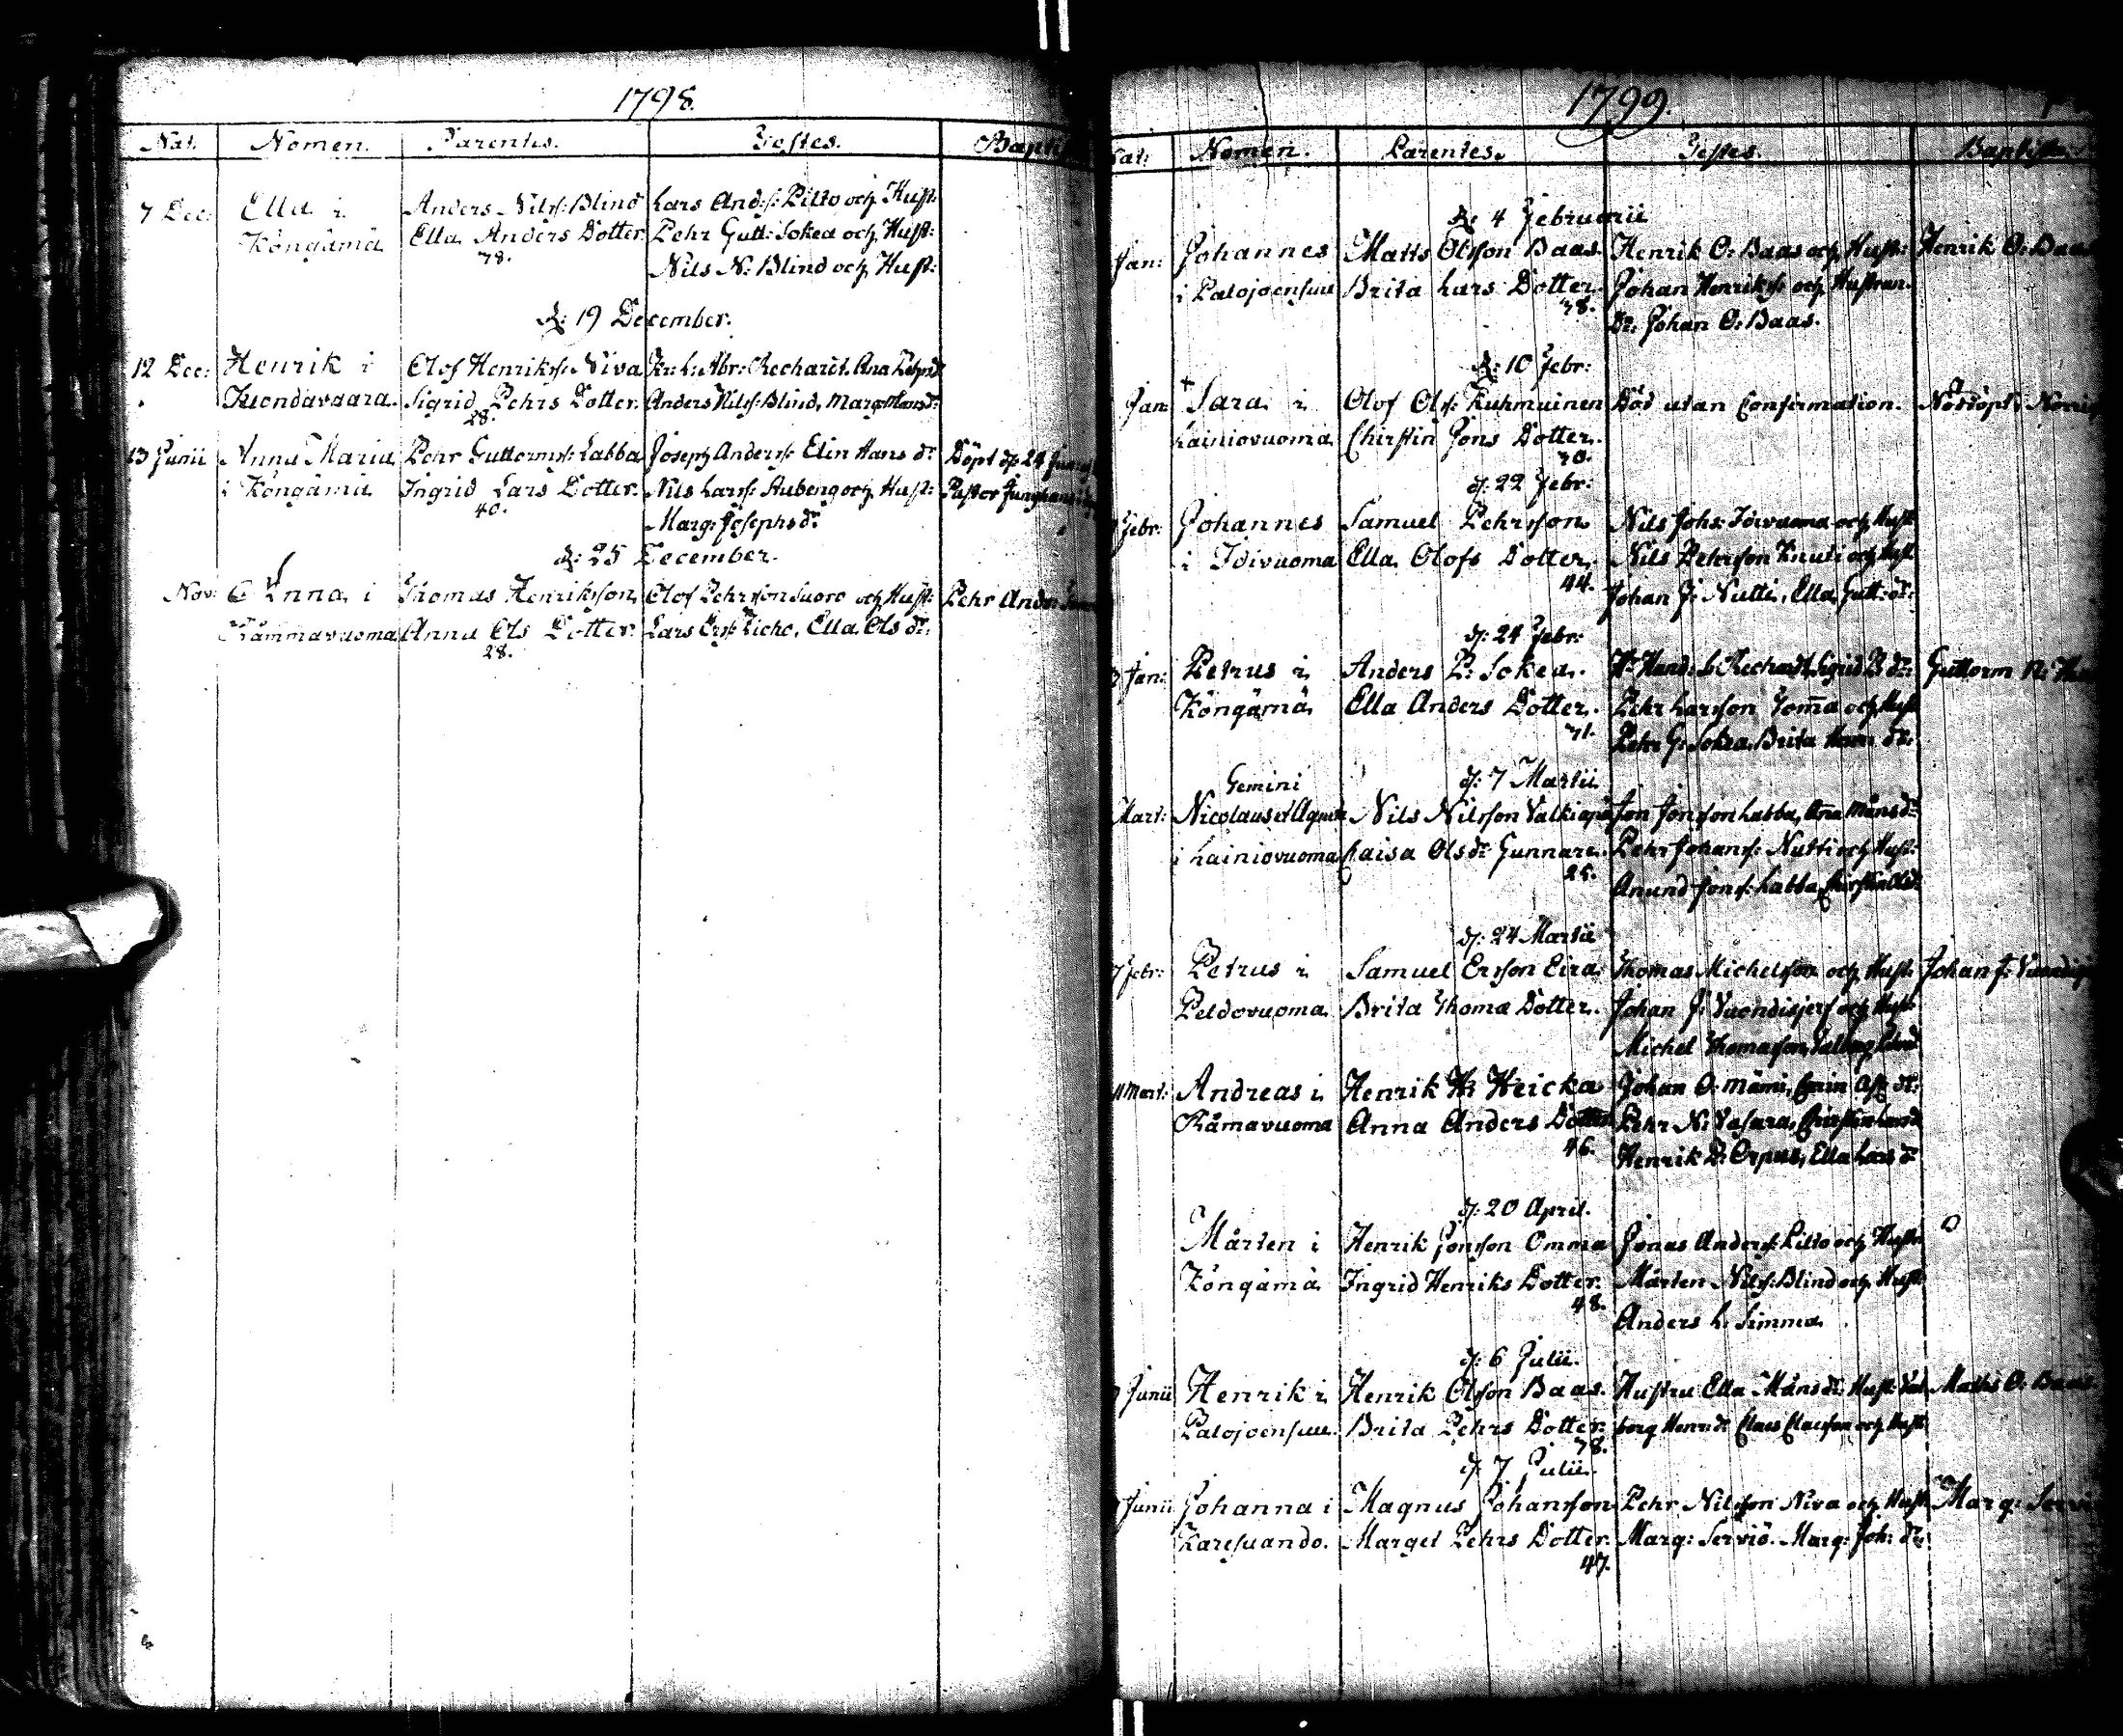 1798.
Nat. Nomen. Parentes. Testes. Bapti
7 Dec: Ella i Anders Nilss: Blind Lars Ands: Pilto och Hust:
Köngämä Ella Anders Dotter. Pehr Gutt: Sokea och Hust:
78. Nils N: Blind och Hust:
d: 19 December.
12 Dec: Henrik i Olof Henrikss: Niva Abr: Rechardt. Ana
Kuondavaara. Sigrid Pehrs Dotter. Anders Nilss: Blind, Marg
28.
13 Junii Anna Maria Pehr Guttormss: Labba Joseph Anderss: Elin Hans dr Döpt d: 24 Junii
i Köngämä Ingrid Lars Dotter. Nils Larss: Aubeng och Hust: Pastor
40. Marg: Josephs dr
d: 25 December.
Nov: Anna i Thomas Henrikson Olof Pehrsson Suoro och Hust: Pehr Anders
Råmmavuoma Anna Ols Dotter. Lars Ella Ols dr:
28.
1799.
Nat: Nomen. Parentes. Testes. Baptista
d: 4 Februarii
Jan: Johannes Matts Olsson Baas. Henrik O: Baas och Hust: Henrik O: Baas
i Palojoensuu Brita Lars Dotter. Johan Henrikss: och Hustrun.
78. Dr: Johan O: Baas.
d: 10 Febr:
Jan: Sara i Olof Ols: Kuhmuinen Död utan Confirmation. Nöddöpt
Lainiovuoma Chirstin Jons Dotter.
70.
d: 22 Febr:
Febr: Johannes Samuel Pehrsson Nils Johs: Idivuoma och Hust
i Idivuoma Ella Olofs Dotter. Nils Pehrsson Knuti och Hust
44. Johan J: Nutti, Ella Gutt: dr:
d: 24 Febr:
Jan: Petrus i Anders P: Sokea. Hr Hand: L: Rechardt, Sigrid P dr: Guttorm N:
Köngämä Ella Anders Dotter. Pehr Larsson Tom̅a och Hust
71. Pehr G: Sokea, Brita Henr: dr:
Gemini d: 7 Martii
Mart: Nicolaus et Agneta Nils Nilsson Valkiapä Jon Jonsson Labba, Ana Måns dr
i Lainiovuoma Caisa Ols dr Gunnare. Pehr Johanss: Nutti och Hust:
25. Anund Jonss: Labba,
d: 24 Martii
7 Febr: Petrus i Samuel Ersson Eira Thomas Michelsson och Hust: Johan J:
Peldovuoma Brita Thoma Dotter. Johan J: Vuondisjerf och Hust:
Michel Thomasson,
11 Mart: Andreas i Henrik H: Heicka Johan O: Mämi,
Råmavuoma Anna Anders Dotter Pehr N: Vasara,
46. Henrik Ella Lars dr
d: 20 April.
Mårten i Henrik Jonsson Omma Jonas Anderss: Pilto och Hust:
Köngämä Ingrid Henriks Dotter. Mårten Nilss: Blind och Hust
48. Anders L: Simma
d: 6 Julii.
Junii Henrik i Henrik Olsson Baas. Hustru Ella Måns dr, Hust: Val Matts O: Baas
Palojoensuu. Brita Pehrs Dotter. borg Henr: dr Claes Claesson och Hust
78.
d: 7 Julii.
Junii Johanna i Magnus Johansson Pehr Nilsson Niva och Hust: Marg: Servi
Karesuando. Margel Pehrs Dotter. Marg: Serviö. Marg: Joh: dr
47.